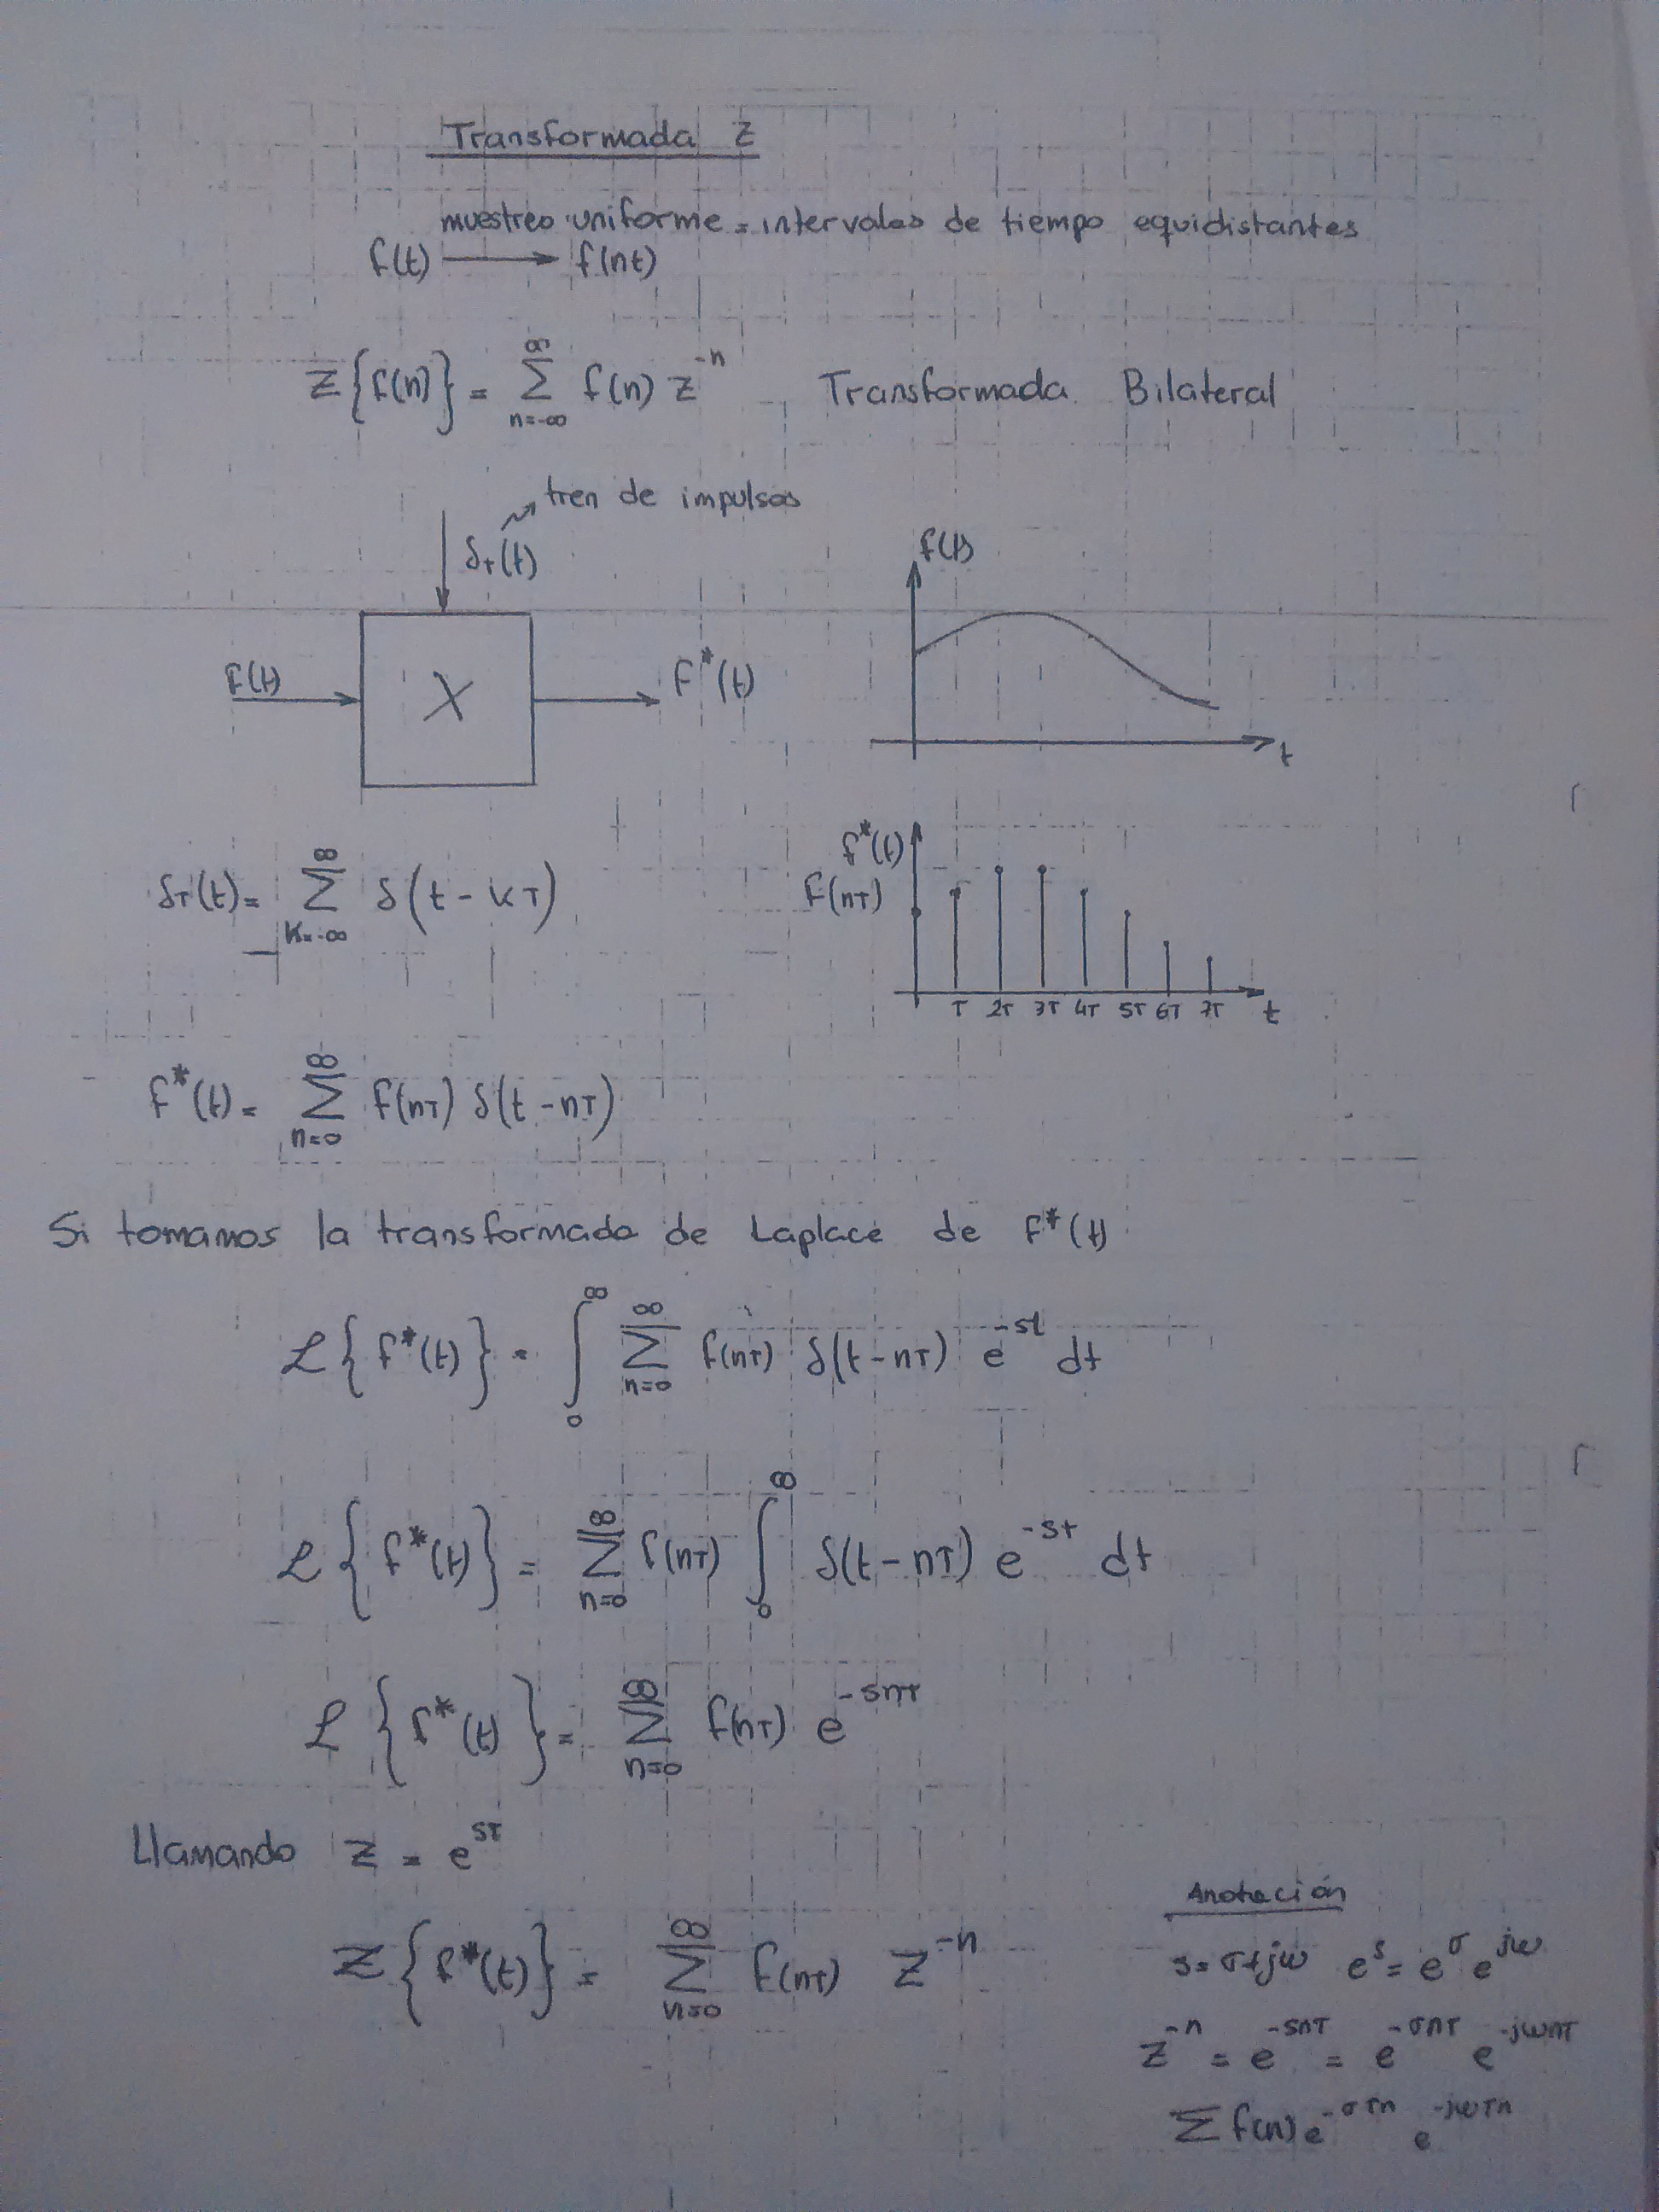 Transformada Z
muestreo uniforme = intervalos de tiempo equidistantes
f(t) ⟶ f(nt)
Z{f(n)} = ∑_{n=-∞}^{∞} f(n) z^{-n} Transformada Bilateral
tren de impulsos
δ_T(t)
f(t)
X
f*(t)
f(t)
t
δ_T(t) = ∑_{K=-∞}^{∞} δ(t - KT)
f*(t)
f(nT)
T 2T 3T 4T 5T 6T 7T t
f*(t) = ∑_{n=0}^{∞} f(nT) δ(t - nT)
Si tomamos la transformada de Laplace de f*(t)
ℒ{f*(t)} = ∫_0^∞ ∑_{n=0}^{∞} f(nT) δ(t - nT) e^{-st} dt
ℒ{f*(t)} = ∑_{n=0}^{∞} f(nT) ∫_0^∞ δ(t - nT) e^{-st} dt
ℒ{f*(t)} = ∑_{n=0}^{∞} f(nT) e^{-snT}
Llamando z = e^{sT}
Z{f*(t)} = ∑_{n=0}^{∞} f(nT) z^{-n}
Anotación
s = σ + jω e^s = e^σ e^{jω}
z^{-n} = e^{-snT} = e^{-σnT} e^{-jωnT}
∑ f(n) e^{-σTn} e^{-jωTn}